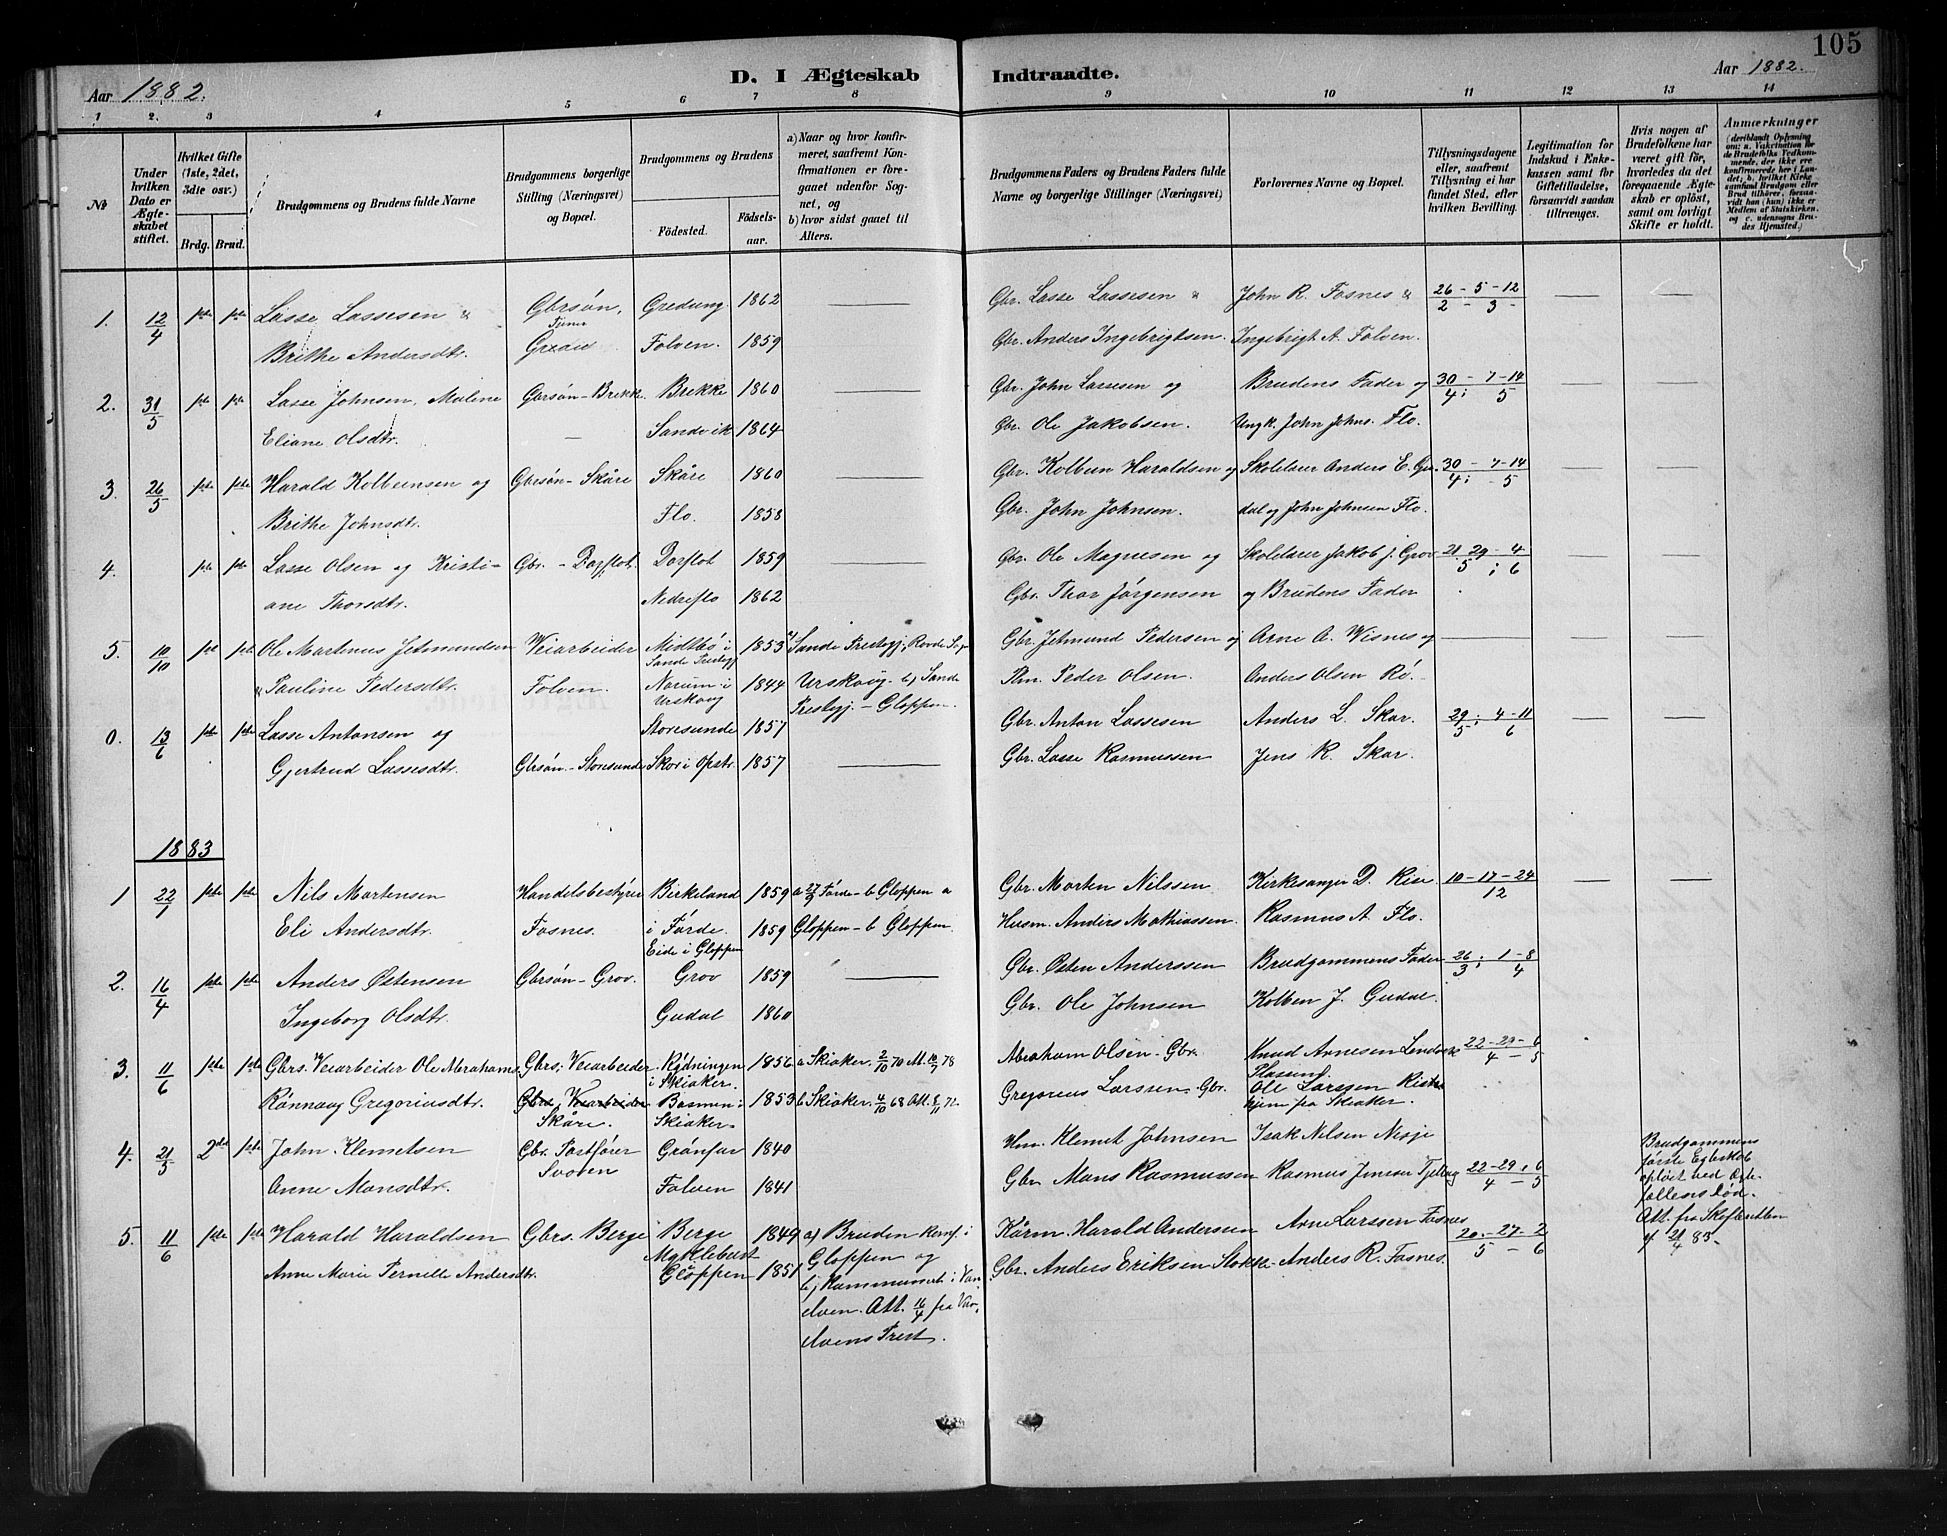 105
Aar 1882.
D. I Ægteskab Indtraadte.
Aar 1882.
1 2. 3 4 5 6 7 8 9 10 11 12 13 14
No
Under hvilken Dato er Ægteskabet stiftet.
Hvilket Gifte (1ste, 2det, 3die osv.)
Brdg. Brud.
Brudgommens og Brudens fulde Navne
Brudgommens borgerlige Stilling (Næringsvei) og Bopæl.
Brudgommens og Brudens
Födested. Födselsaar.
a) Naar og hvor konfirmeret, saafremt Konfirmationen er foregaaet udenfor Sognet, og
b) hvor sidst gaaet til Alters.
Brudgommens Faders og Brudens Faders fulde Navne og borgerlige Stillinger (Næringsvei)
Forlovernes Navne og Bopæl.
Tillysningsdagene eller, saafremt Tillysning ei har fundet Sted, efter hvilken Bevilling.
Legitimation for Indskud i Enkekassen samt for Giftetilladelse, forsaavidt saadan tiltrænges.
Hvis nogen af Brudefolkene har været gift för, hvorledes da det foregaaende Ægteskab er oplöst, samt om lovligt Skifte er holdt.
Anmærkninger
(deriblandt Oplysning om: a. Vaksination for de Brudefolks Vedkommende, der ikke ere konfirmerede her i Landet; b. hvilket Kirkesamfund Brudgom eller Brud tilhörer, forsaavidt han (hun) ikke er Medlem af Statskirken, og c. udensogns Brudes Hjemsted.)
1. 12/4 1ste 1ste Lasse Lassesen & Gbrsøn, Gredung 1862 Gbr. Lasse Lassesen & John R. Fosnes & 26 - 5 - 12
Brithe Andersdtr. Folven. 1859 Gbr. Anders Ingebrigtsen. Ingebrigt A. Folven. 2 - 3 -
2. 31/5 1ste 1ste Lasse Johnsen, Malene Gbrsøn - Brekk. Brekke 1860 Gbr. John Lassesen og Brudens Fader og 30 - 7 - 14
Eliane Olsdtr. Sandvik 1864 Gbr. Ole Jakobsen. Ungk. John Johns. Flo. 4; 5
3. 26/5 1ste 1ste Harald Kolbeinsen og Gbrsøn - Skåre Skåre 1860 Gbr. Kolben Haraldsen og Skolelærer Anders E. Gu- 30 - 7 - 14
Brithe Johnsdtr. Flo. 1858 Gbr. John Johnsen. dal og John Johnsen Flo. 4; 5
4. 1ste 1ste Lasse Olsen og Kristi- Gbr. - Dorflot. Dorflot 1859 Gbr. Ole Magnesen og Skolelærer Jakob J. Grov 21. 29 - 4
ane Thorsdtr. Nedreflo 1862 Gbr. Thor Jørgensen og Brudens Fader 5 ; 6
5. 10/10 1ste 1ste Ole Martinus Jetmundsen Veiarbeider Midtbö i Sande Prestegj 1853 Sande Prestegj, Rovde Sogn Gbr. Jetmund Pedersen og Arne A. Wisnes og
Pauline Pedersdtr. Folven. Norum i Urskoug 1844 Urskoug - b) Sande Prestegj. - Gloppen. Plm. Peder Olsen. Anders Olsen Rö.
0. 13/6 1ste 1ste Lasse Antonsen og Storesunde 1857 Gbr. Anton Lassesen Anders L. Skar. 29; 4 - 11
Gjertrud Lassesdtr. Gbrsøn - Storesunde Skor i Opstr. 1857 Gbr. Lasse Rasmussen Jens R. Skar. 5 6
1883
1 22/1 1ste 1ste Nils Mortensen Handelsbestyrer Birkeland 1859 a 27/5 Förde - b Gloppen a Gbr. Morten Nilssen Kirkesanger D. Rise 10 - 17 - 24
Eli Andersdtr. Fosnes. i Förde. Eide i Gloppen 1859 Gloppen - b Gloppen. Husm. Anders Mathiassen. Rasmus A. Flo. 12
2. 16/4 1ste 1ste Anders Østensen Gbrsøn - Grov. Grov 1859 Gbr. Østen Anderssen Brudgommens Fader 26; 1 - 8
Ingeborg Olsdtr. Gudal 1860 Gbr. Ole Johnsen Kolben J. Gudal. 3 4
3. 11/6 1ste 1ste Gbrs. Veiarbeider Ole Abrahams. Gbrs. Veiarbeider. Rydningen i Skiaker. 1856 a Skiaker. 2/10 70 At. 10/7 78 Abraham Olsen - Gbr. Knud Arnesen 22 - 29 - 6
Rønnaug Gregoriusdtr. Gbrs. Veiarbeider Skåre. Bosmen i Skiaker 1853 b Skiaker. 4/10 68 Att. 8/11 72. Gregorius Larssen - Gbr. Ole Larssen fra Skiaker. 4 - 5
4. 21/5 2det 1ste John Klemetsen Gbr. Postfører Svoren Grönfur 1840 Hm. Klemet Johnsen Isak Nilsen Nesje
Anne Monsdtr. Folven 1841 Gbr. Mons Rasmussen Rasmus Jensen 22 - 29 , 6
4 - 5
Brudgommens første Egteskab opløst ved Ægtefællens Död. Att. fra Skifteretten 21/4 83.
5. 11/6 1ste 1ste Harald Haraldsen Gbrs. Berge Berge 1849 a) Bruden konf. i Gloppen og Kårm. Harald Anderssen Arne Larssen Fosnes 20. - 27 - 2
Anne Marie Pernille Andersdtr. Myklebust Gloppen 1851 b) Kommuneret i Vanelven. Att. 16/4 fra Vanelvens Prest. Gbr. Anders Eriksen Anders R. Fosnes. 5 - 6